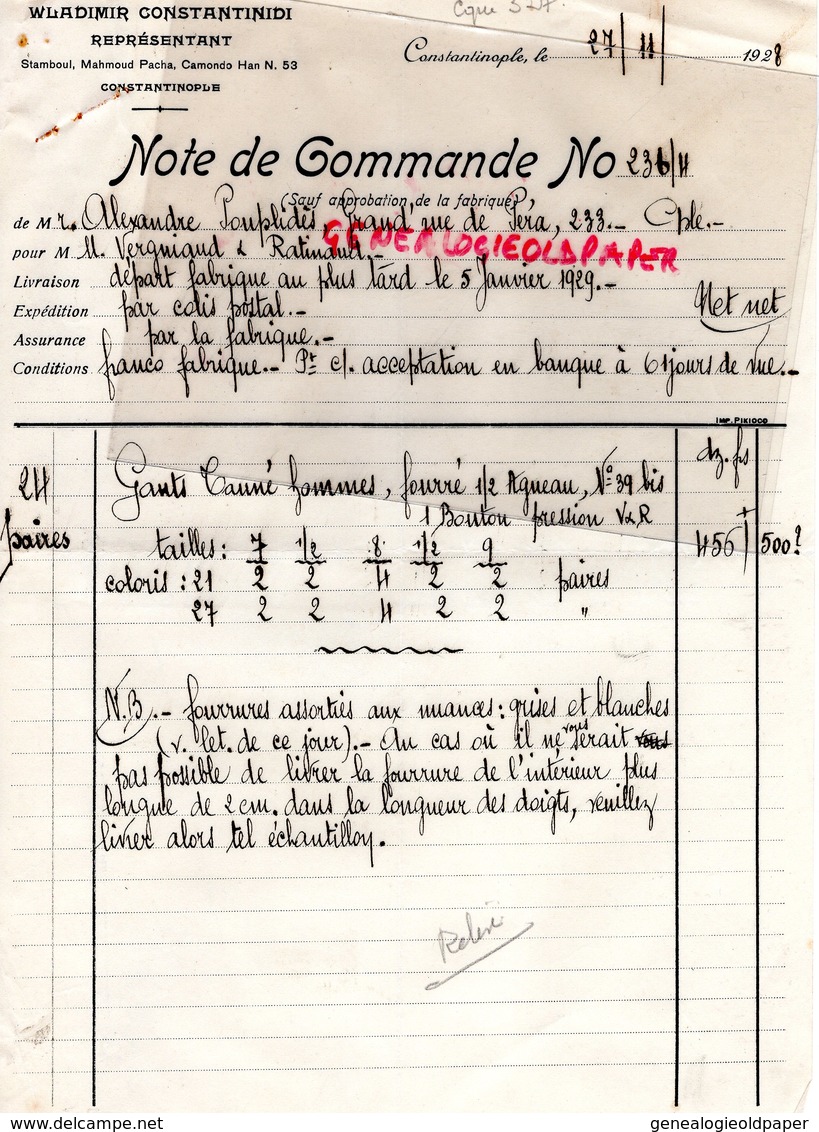 WLADIMIR CONSTANTINIDI
REPRÉSENTANT
Stamboul, Mahmoud Pacha, Camondo Han N. 53
CONSTANTINOPLE
Constantinople, le 27/11/ 1928
Note de Commande No 236/4
(Sauf approbation de la fabrique)
de Mr. Alexandre Pouplidès, Grand'rue de Péra, 233.- Cple.-
GENEALOGIEOLDPAPER
pour M M. Vergniaud & Ratinaud.-
Livraison départ fabrique au plus tard le 5 Janvier 1929.-
Expédition par colis postal.-
Net net
Assurance par la fabrique.-
Conditions franco fabrique.- Pt c/. acceptation en banque à 61 jours de vue.-
IMP. PIKIOCO
dz. fs
24 Gants Tanné hommes, fourré 1/2 Agneau, No 39 bis
1 Bouton pression V&R
paires tailles : 7 1/2 8 1/2 9 456 500?
coloris : 21 2 2 4 2 2 paires
27 2 2 4 2 2 "
N.B.- fourrures assorties aux nuances : grises et blanches
(v. let. de ce jour).- Au cas où il ne vous serait vous
pas possible de livrer la fourrure de l'intérieur plus
longue de 2 cm. dans la longueur des doigts, veuillez
livrer alors tel échantillon.
genealogieoldpaper
genealogieoldpaper